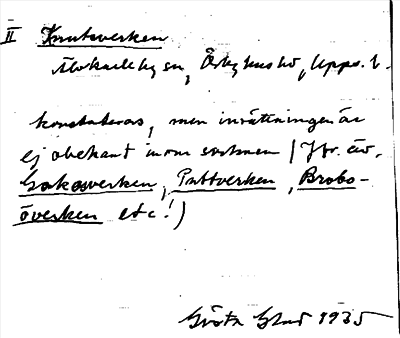 II Knutsverken
Älvkarleby sn, Örbyhus hd, Upps. l.
konstateras, men inrättningen är
ej obekant inom socknen (Jfr. äv.
Gokasverken, Puttverken, Brobo-
överken etc!)
Gösta 1935